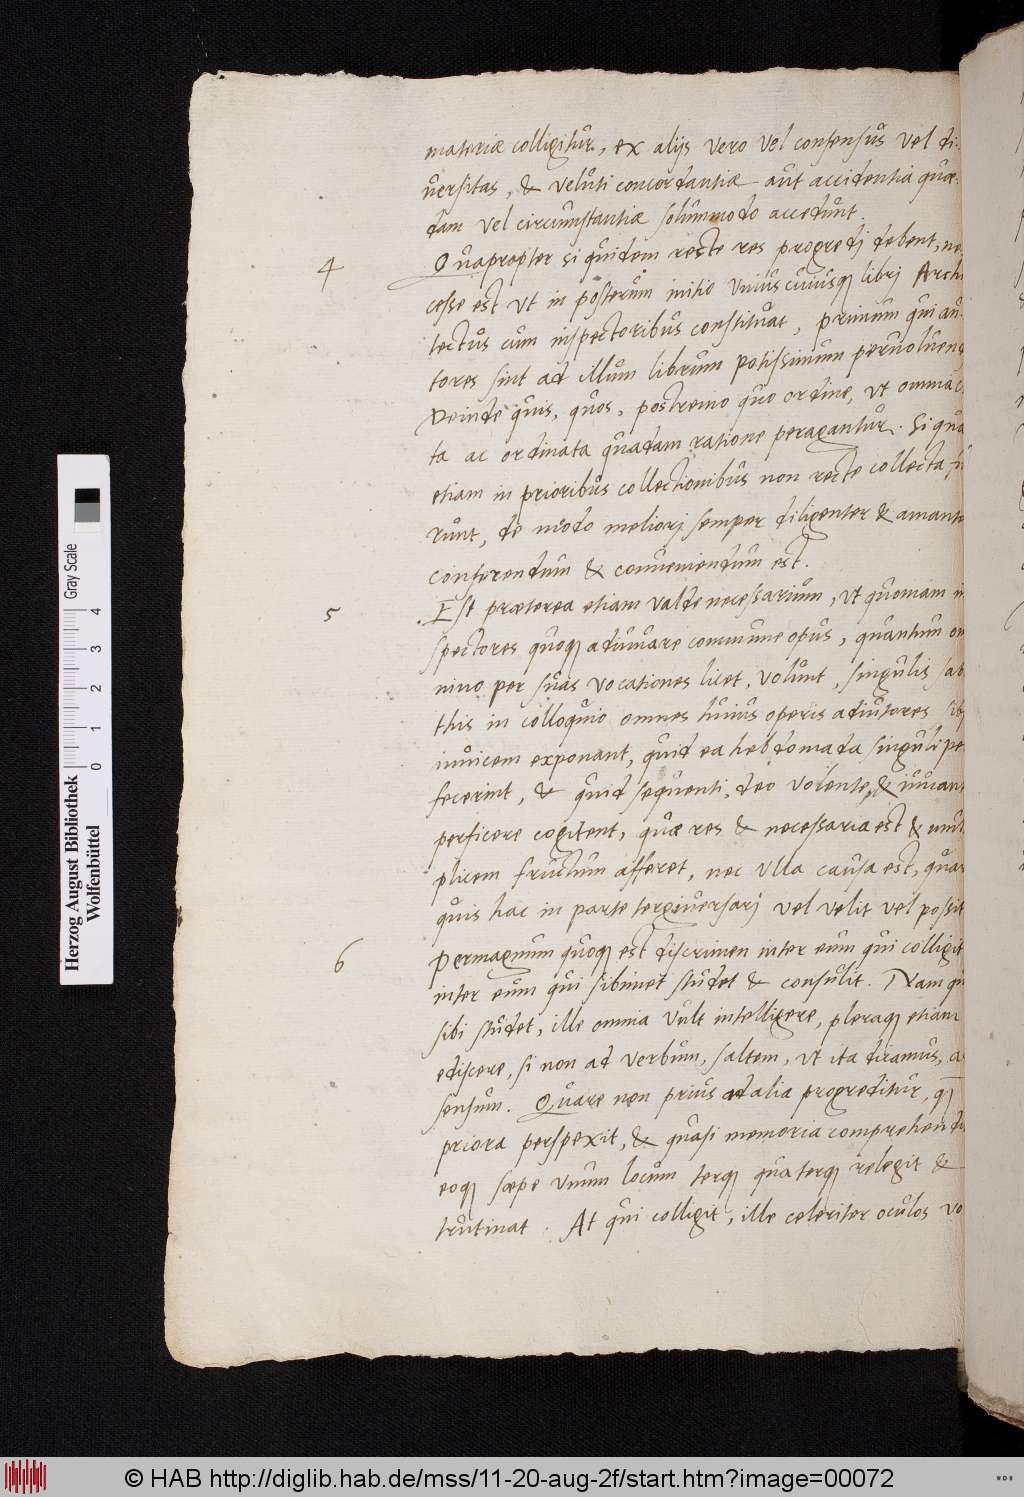 materiæ colligitur, ex alijs vero vel consensus vel di-
uersitas, & veluti concordantiæ aut accidentia quæ-
dam vel circumstantiæ solummodo accedunt.
4 Quapropter si quidem recte res progredj debent, ne
cesse est vt in posterum initio vniuscuiusq libri Archi
tectus cum inspectoribus constituat, primum qui au-
tores sint ad illum librum potissimum peruoluend
Deinde quis, quos, postremo quo ordine, vt omnia c
ta ac ordinata quadam ratione peragantur. Si qua
etiam in prioribus collectionibus non recte collecta fu
runt, de modo meliorj semper diligenter & amant
conferendum & conueniendum est.
5 Est præterea etiam valde necessarium, vt quoniam in
spectores quoq adiuuare commune opus, quantum om
nino per suas vocationes licet, volunt, singulis sab
this in colloquio omnes huius operis adiutores sib
inuicem exponant, quid ea hebdomada singuli per
fecerint, & quid sequenti, deo volente, & iuuant
perficere cogitent, quæ res & necessaria est & mul
plicem fructum afferet, nec vlla causa est, quar
quis hac in parte tergiuersarj vel velit vel possit
6 Permagnum quoq est discrimen inter eum qui colligit
inter eum qui sibimet studet & consulit. Nam qu
sibi studet, ille omnia vult intelligere, pleraq etiam
ediscere, si non ad verbum, saltem, vt ita dicamus, a
sensum. Quare non prius ad alia progreditur, q
priora perspexit, & quasi memoria comprehendi
eoq sæpe vnum locum terq quaterq relegit &
trutinat. At qui colligit, ille celeriter oculos vo
Herzog August Bibliothek
Wolfenbüttel
0 1 2 3 4
Gray Scale
© HAB http://diglib.hab.de/mss/11-20-aug-2f/start.htm?image=00072